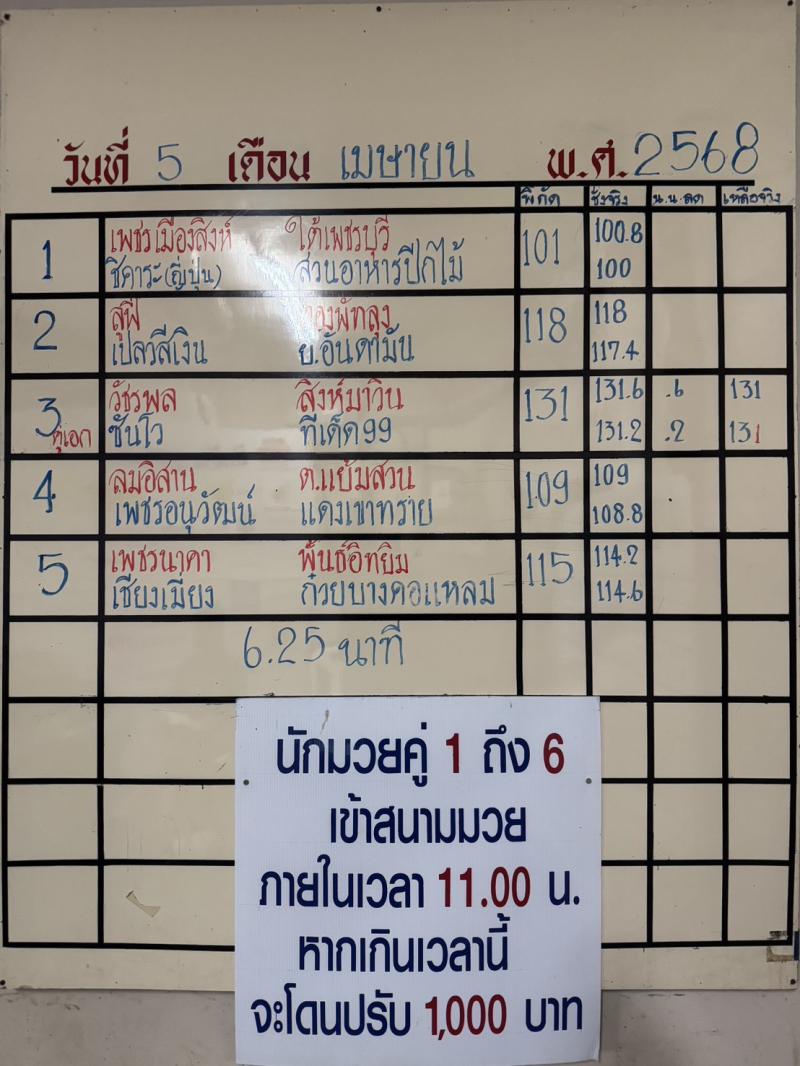 วันที่ 5 เดือน เมษายน พ.ศ. 2568
พิกัด ชั่งจริง น.น.ลด เหลือจริง
1 เพชรเมืองสิงห์ ใต้เพชรบุรี 101 100.8
ชิคาระ(ญี่ปุ่น) สวนอาหารปีกไม้ 100
2 สูฟี 118 118
เปลวสีเงิน ย.อันดามัน 117.4
3 วัชรพล สิงห์มาวิน 131 131.6 .6 131
คู่เอก ซันโว ทีเด็ด99 131.2 .2 131
4 ลมอิสาน ต.แย้มสวน 109 109
เพชรอนุวัฒน์ แดงเขาทราย 108.8
5 เพชรนาคา พันธ์อิทยิม 115 114.2
เชียงเมี่ยง ก๋วยบางคอแหลม 114.6
6.25 นาที
นักมวยคู่ 1 ถึง 6
เข้าสนามมวย
ภายในเวลา 11.00 น.
หากเกินเวลานี้
จะโดนปรับ 1,000 บาท